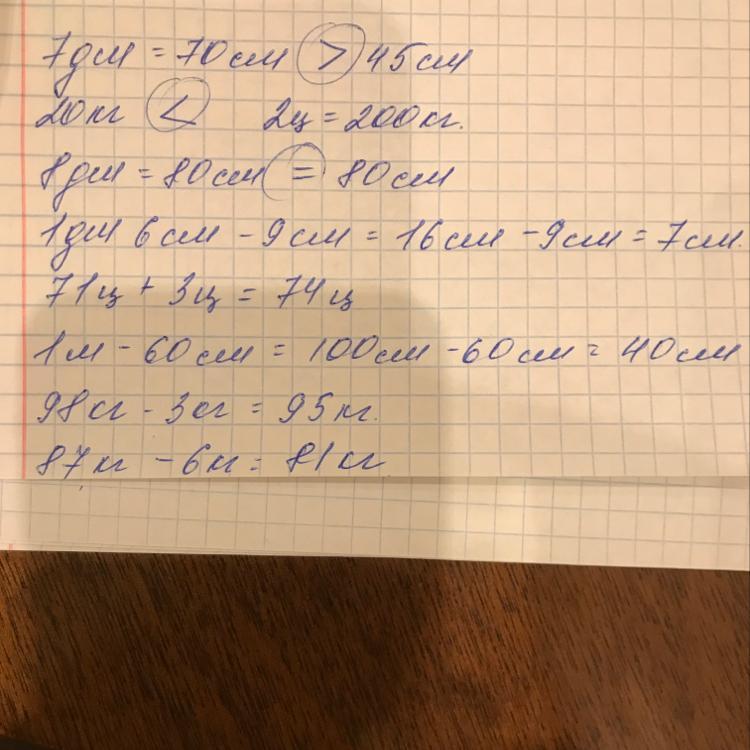 7дм = 70см > 45см
20кг < 2ц = 200кг.
8дм = 80см = 80см
1дм 6см - 9см = 16см - 9см = 7см.
71ц + 3ц = 74ц
1м - 60см = 100см - 60см = 40см
98кг - 3кг = 95кг.
87кг - 6кг = 81кг